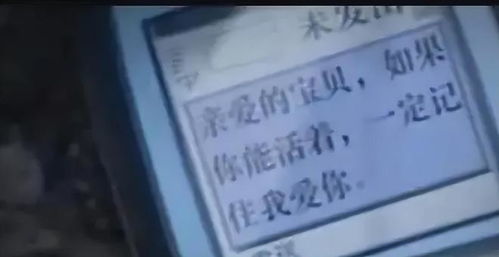 未发出
亲爱的宝贝，如果
你能活着，一定记
住我爱你.